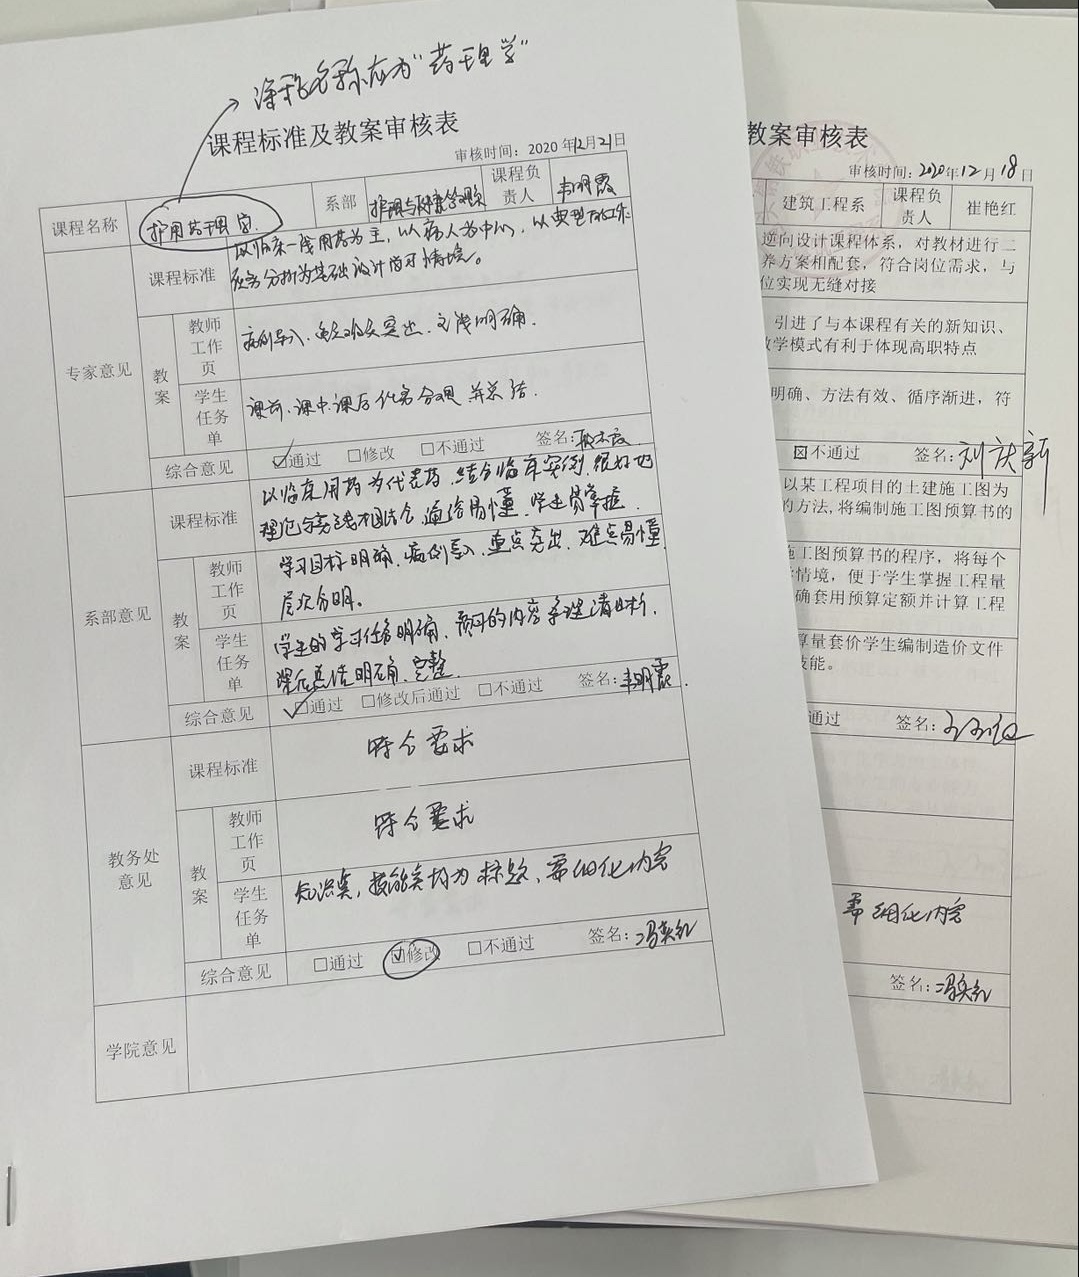 课程名称应为"药理学"
课程标准及教案审核表
审核时间：2020年12月21日
课程名称 护用药理学 系部 护理与健康管理系 课程负责人 韦明霞
专家意见
课程标准
以临床一线用药为主，以病人为中心，以典型工作
任务分析为基础设计学习情境。
教案
教师工作页
病例导入、重点难点突出、主线明确.
学生任务单
课前、课中、课后任务合理并总结.
综合意见 ☑通过 □修改 □不通过 签名：
系部意见
课程标准
以临床用药为代表药，结合临床实例，很好地
理论与实践相结合，通俗易懂，学生易掌握.
教案
教师工作页
学习目标明确，病例导入，重点突出，难点易懂，
层次分明。
学生任务单
学生的学习任务明确，预习的内容条理清晰，
课后总结明确，完整.
综合意见 ☑通过 □修改后通过 □不通过 签名：韦明霞.
教务处意见
课程标准
符合要求
教案
教师工作页
符合要求
学生任务单
知识类，技能类均为标题，需细化内容
综合意见 □通过 ☑修改 □不通过 签名：冯奂红
学院意见
教案审核表
审核时间：2020年12月18日
建筑工程系 课程负责人 崔艳红
逆向设计课程体系，对教材进行二
养方案相配套，符合岗位需求，与
位实现无缝对接
引进了与本课程有关的新知识、
学模式有利于体现高职特点
明确、方法有效、循序渐进，符
☒不通过 签名：刘庆新
以某工程项目的土建施工图为
的方法,将编制施工图预算书的
施工图预算书的程序，将每个
情境，便于学生掌握工程量
确套用预算定额并计算工程
算量套价学生编制造价文件
技能。
通过 签名：
需细化内容
签名：冯奂红